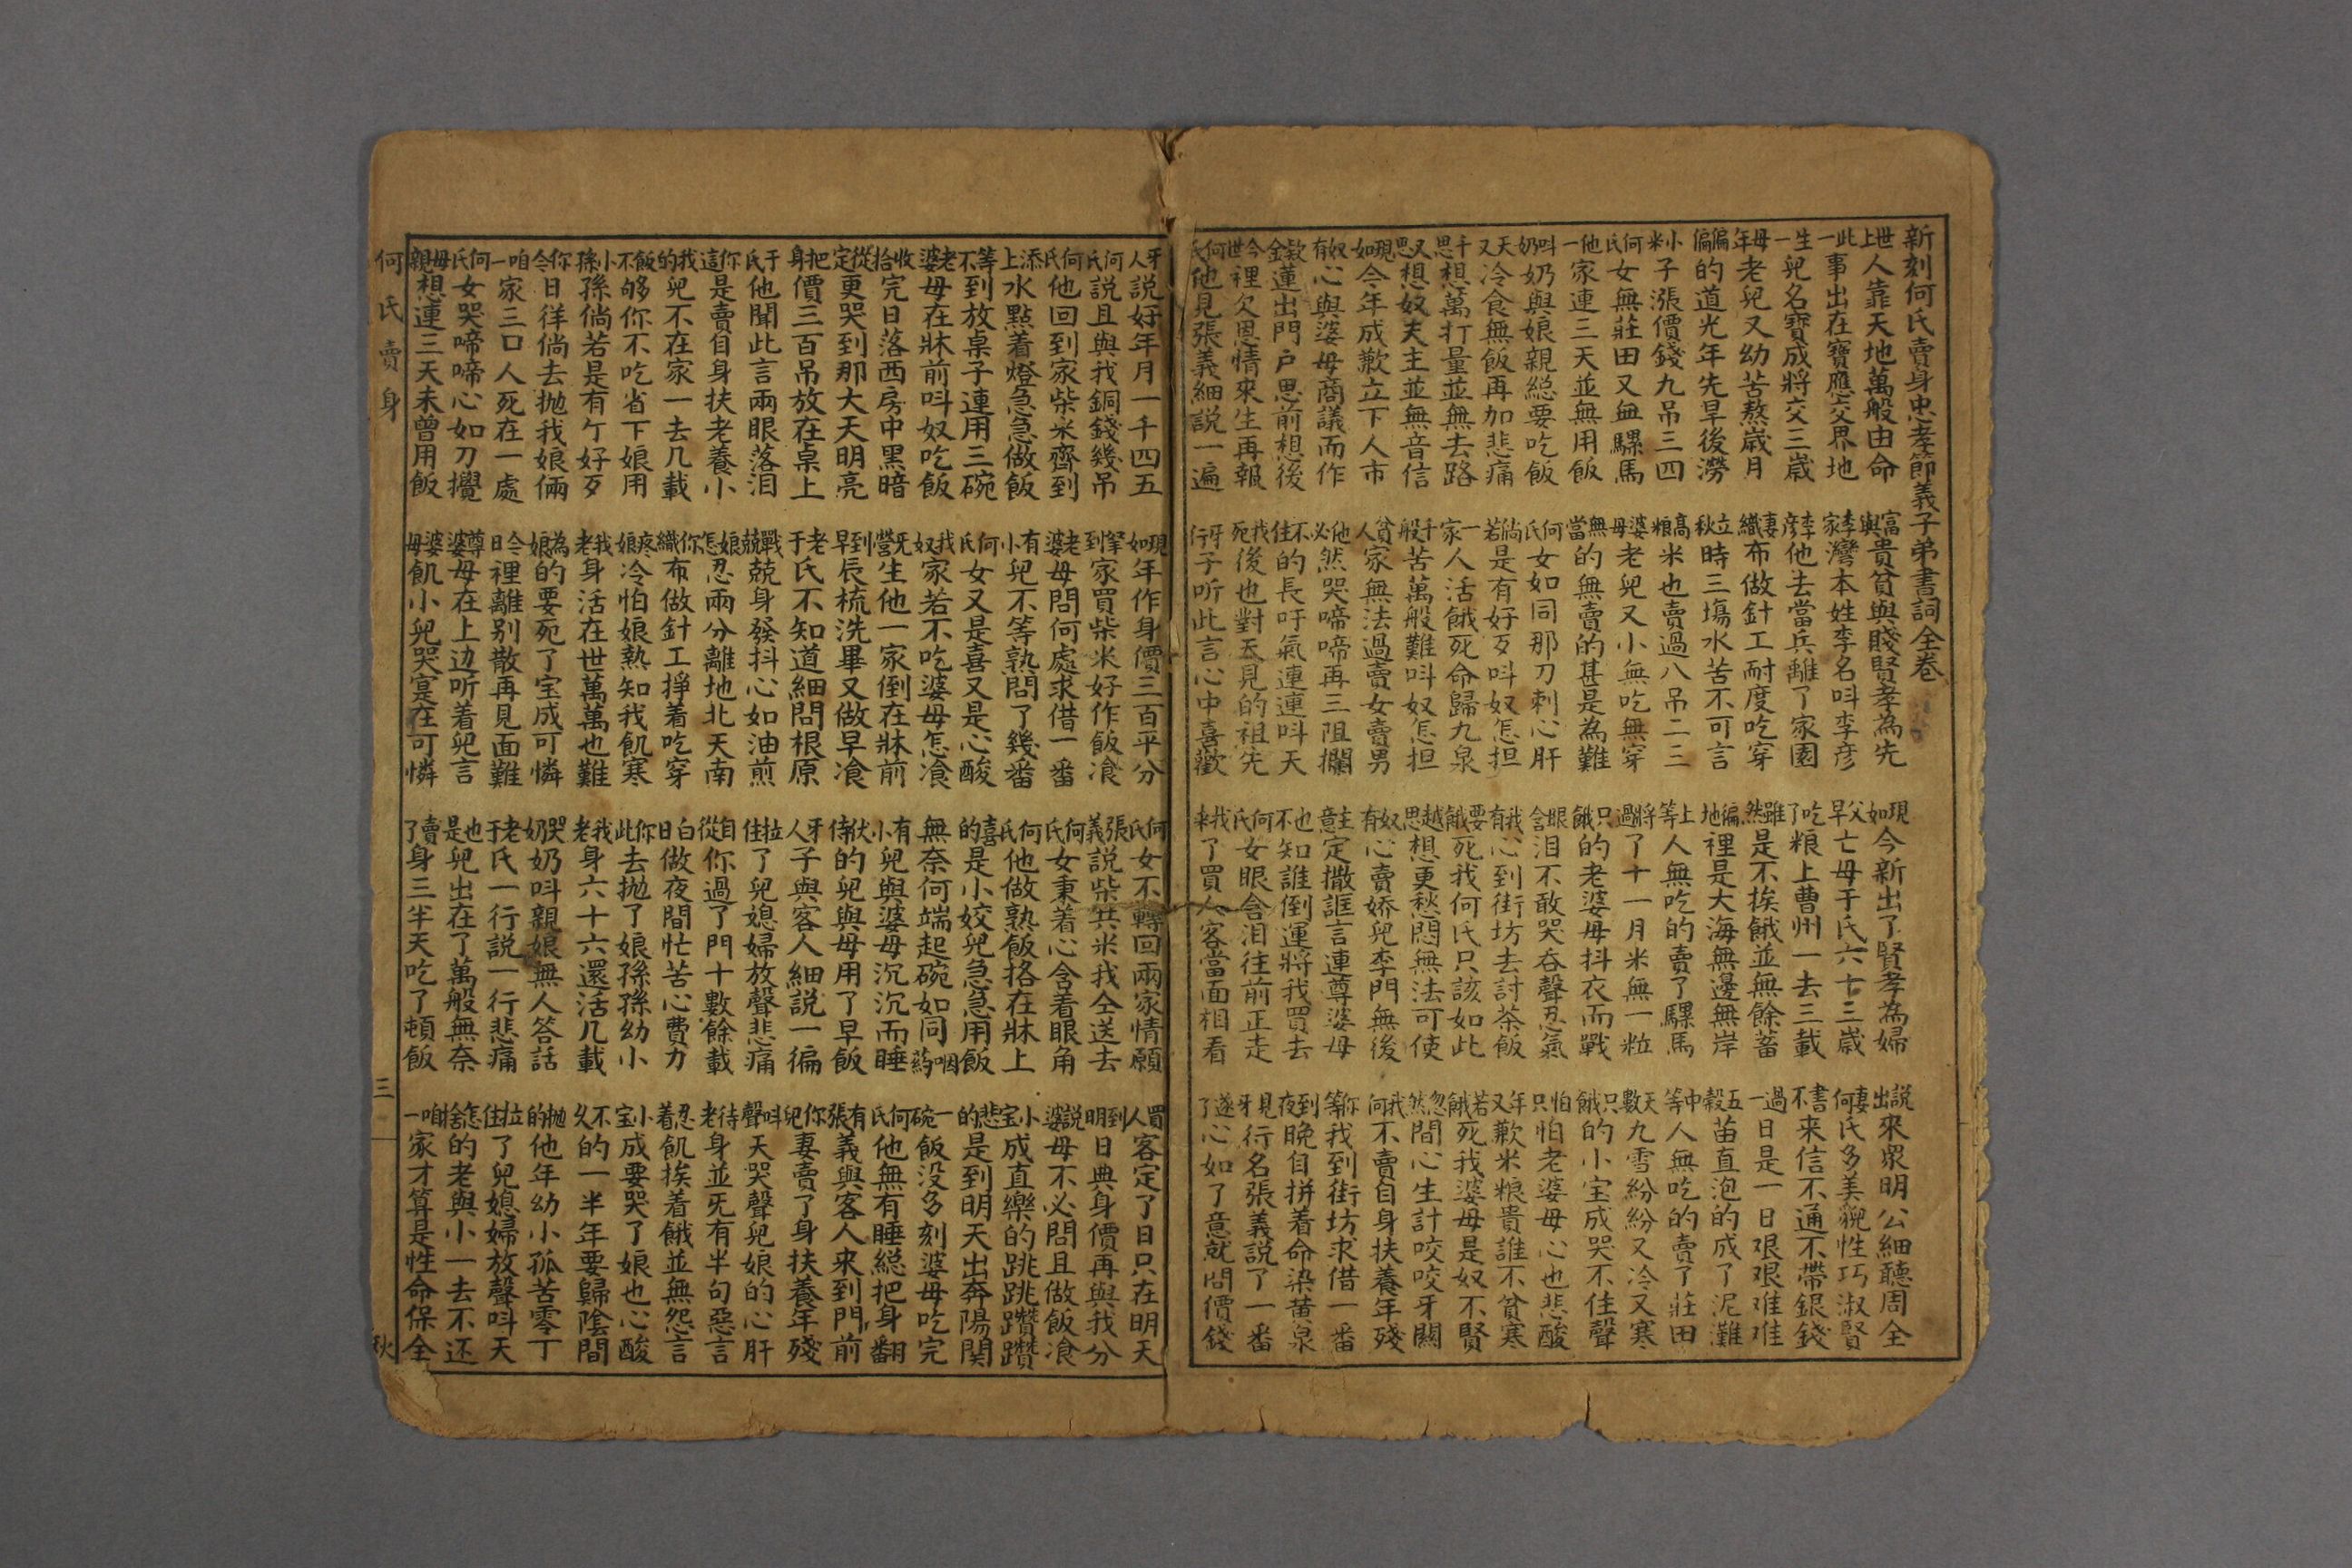 新刻何氏賣身忠孝節義子弟書詞全卷
世上人靠天地萬般由命　富與貴貧與賤賢孝為先　現如今新出了賢孝為婦　說出來衆明公細聽周全
此一事出在寶應交界地　李家灣本姓李名呌李彦　父早亡母于氏六十三歲　妻何氏多美貌性巧淑賢
生一兒名寶成將交三歲　李彦他去當兵離了家園　吃了粮上曹州一去三載　書不来信不通不帶銀錢
母年老兒又幼苦熬歲月　妻織布做針工耐度吃穿　雖然是不挨餓並無餘蓄　過一日是一日艰艰难难
偏偏的道光年先旱後澇　立秋時三塲水苦不可言　偏地裡是大海無邊無岸　五穀苗直泡的成了泥灘
小米子漲價錢九吊三四　高粮米也賣過八吊二三　上等人無吃的賣了騾馬　中等人無吃的賣了莊田
何氏女無莊田又無騾馬　婆母老兒又小無吃無穿　將過了十一月米無一粒　天數九雪紛紛又冷又寒
他一家連三天並無用飯　無當的無賣的甚是為難　只餓的老婆母抖衣而戰　只餓的小宝成哭不住聲
呌奶奶與娘親緫要吃飯　何氏女如同那刀刺心肝　眼含泪不敢哭吞聲忍氣　怕只怕老婆母心也悲酸
天又冷食無飯再加悲痛　倘若是有好歹呌奴怎担　我有心到街坊去討茶飯　年又歉米粮貴誰不貧寒
千思想萬打量並無去路　一家人活餓死命歸九泉　要餓死我何氏只該如此　若餓死我婆母是奴不賢
又思想奴夫主並無音信　千般苦萬般難呌奴怎担　越思想更愁悶無法可使　忽然間心生計咬咬牙關
現如今年成歉立下人市　貧人家無法過賣女賣男　奴有心賣娇兒李門無後　我何不賣自身扶養年殘
奴有心與婆母商議而作　他必然哭啼啼再三阻攔　主意定撒誆言連尊婆母　你等我到街坊求借一番
欵金蓮出門戶思前想後　不住的長吁氣連連呌天　也不知誰倒運將我買去　到夜晚自拼着命染黄泉
今世裡欠恩情來生再報　我死後也對天見的祖先　何氏女眼含泪往前正走　見牙行名張義說了一番
何氏他見張義細說一遍　牙行子听此言心中喜歡　我来了買人客當面相看　遂了心如了意就問價錢
牙人說好年月一千四五　現如年作身價三百平分　何氏女不轉回兩家情願　買人客定了日只在明天
何氏說且與我銅錢幾吊　到家買柴米好作飯飡　張義說柴共米我全送去　到明日典身價再與我分
何氏他回到家柴米齊到　老婆母問何處求借一番　何氏女秉着心含着眼角　說婆母不必問且做飯飡
添上水點着燈急急做飯　有小兒不等熟問了幾番　何氏他做熟飯掿在牀上　小宝成直樂的跳跳躦躦
等不到放桌子連用三碗　何氏女又是喜又是心酸　喜的是小姣兒急急用飯　悲的是到明天出奔陽関
老婆母在牀前呌奴吃飯　我奴家若不吃婆母怎飡　無奈何端起碗如同咽药　一碗飯没多刻婆母吃完
收拾完日落西房中黑暗　旡營生他一家倒在牀前　有小兒與婆母沉沉而睡　何氏他無有睡緫把身翻
從定更哭到那大天明亮　到早辰梳洗畢又做早飡　伏侍的兒與母用了早飯　有張義與客人来到門前
把身價三百吊放在桌上　老于氏不知道細問根原　牙人子與客人細說一徧　你兒妻賣了身扶養年殘
于氏他聞此言兩眼落泪　戰兢兢身發抖心如油煎　拉住了兒媳婦放聲悲痛　呌聲天哭聲兒娘的心肝
你這是賣自身扶老養小　娘怎忍兩分離地北天南　自從你過了門十數餘載　待老身並旡有半句惡言
我的兒不在家一去几載　你織布做針工掙着吃穿　白日做夜間忙苦心費力　忍着飢挨着餓並無怨言
飯不够你不吃省下娘用　疼娘冷怕娘熱知我飢寒　你此去抛了娘孫孫幼小　小宝成要哭了娘也心酸
小孫孫倘若是有亇好歹　我老身活在世萬萬也難　我老身六十六還活几載　不久的一半年要歸陰間
你今日徉倘去抛我娘倆　為娘的要死了宝成可憐　哭奶奶呌親娘無人答話　抛的他年幼小孤苦零丁
咱一家三口人死在一處　今日裡離别散再見面難　老于氏一行說一行悲痛　拉住了兒媳婦放聲呌天
何氏女哭啼啼心如刀攪　尊婆母在上边听着兒言　也是兒出在了萬般無奈　怎捨的老與小一去不还
母親想連三天未曾用飯　婆母飢小兒哭寔在可憐　賣了身三半天吃了頓飯　咱一家才算是性命保全
何氏賣身
三
秋